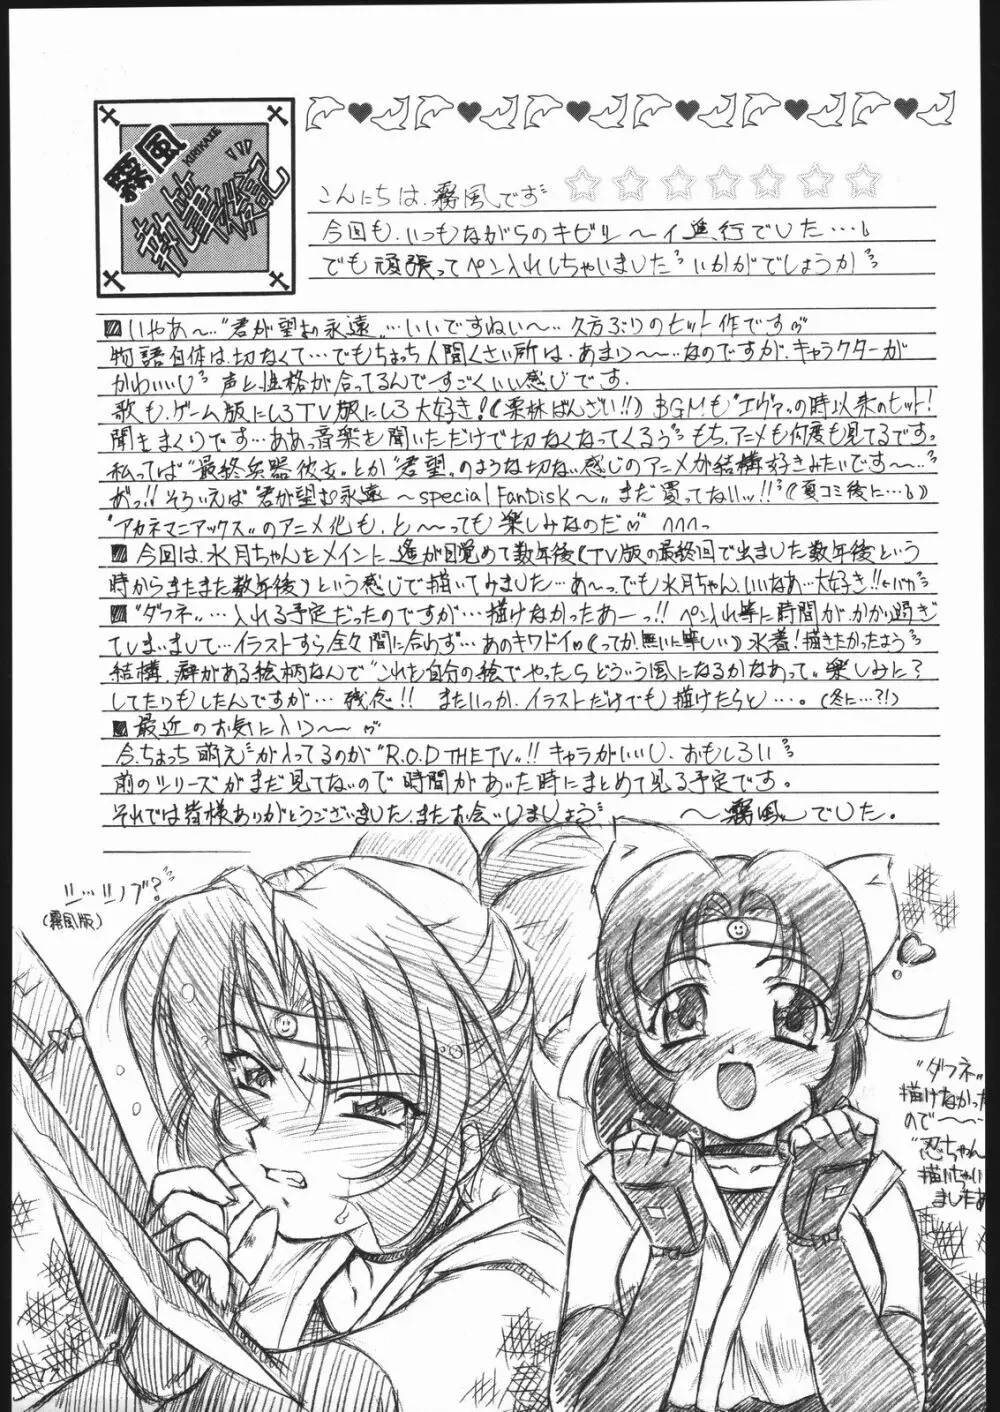 霧風
KIRIKAZE
執筆後記
こんにちは、霧風です
今回も、いつもながらのキビシ〜イ進行でした…。
でも頑張ってペン入れしちゃいました いかがでしょうか
いやあ〜…"君が望む永遠"…いいですねい〜…久方ぶりのヒット作です
物語自体は、切なくて…でもちょっち人間くさい所は、あまり〜…なのですが、キャラクターが
かわいいし 声と性格が合ってるんですごくいい感じです。
歌も、ゲーム版にしろTV版にしろ大好き!(栗林ばんざい!!) BGMも"エヴァ"の時以来のヒット!
聞きまくりです…ああ、音楽を聞いただけで切なくなってくるぅ もち、アニメも何度も見てるです。
私ってば"最終兵器彼女"とか"君望"のような切ない感じのアニメが結構好きみたいです〜…
がっ!! そういえば"君が望む永遠 〜special FanDisk〜"まだ買ってないッ!!(夏コミ後に…)
"アカネマニアックス"のアニメ化も、と〜っても楽しみなのだ
今回は、水月ちゃんをメインに、遙が目覚めて数年後(TV版の最終回で出ました数年後という
時からまたまた数年後)という感じで描いてみました…あ〜っでも水月ちゃん、いいなあ…大好き!!←バカ
"ダフネ"…入れる予定だったのですが…描けなかったあーっ!! ペン入れ等に時間が、かかり過ぎ
てしまいまして…イラストすら全々間に合わず…あのキワドイの(ってか、無いに等しい)水着!描きたかったよう
結構、癖がある絵柄なんで"これを自分の絵でやったらどういう風になるかなあって"楽しみに?
してたりもしたんですが… 残念!! またいつか、イラストだけでも描けたらと…。(冬に…?!)
最近のお気に入り〜
今、ちょっち"萌え"が入ってるのが"R.O.D THE TV"!! キャラがいいし、おもしろい
前のシリーズがまだ見てないので時間があいた時にまとめて見る予定です。
それでは皆様ありがとうございました、またお会いしましょう 〜霧風〜でした。
シ…シノブ?
(霧風版)
"ダフネ"
描けなかった
ので〜…
"忍ちゃん
描いちゃい
ましたぁ